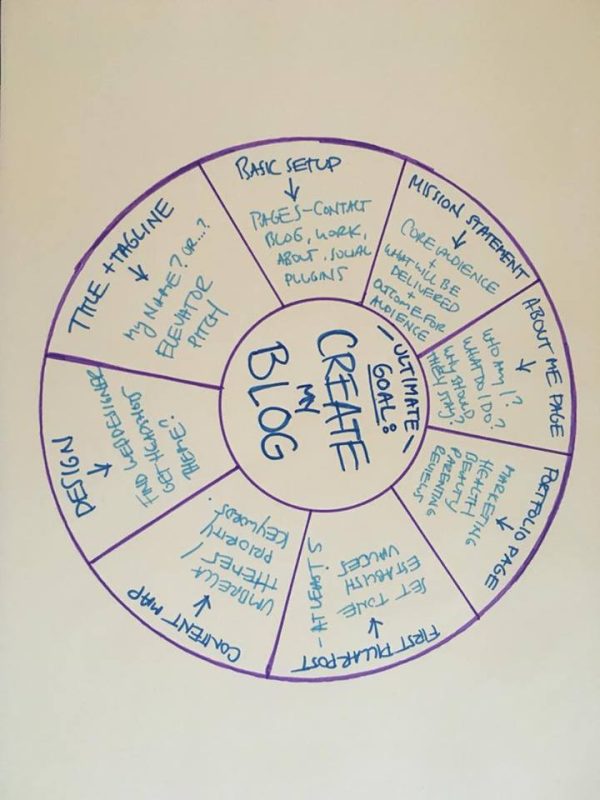 ULTIMATE
GOAL:
CREATE
MY
BLOG
BASIC SETUP
PAGES - CONTACT
BLOG, WORK,
ABOUT, SOCIAL
PLUGINS
MISSION STATEMENT
CORE AUDIENCE
+
WHAT WILL BE
DELIVERED
+
OUTCOME FOR
AUDIENCE
ABOUT ME PAGE
WHO AM I?
WHAT DO I DO?
WHY SHOULD
THEY STAY?
PORTFOLIO PAGE
MARKETING
HEALTH
BEAUTY
PARENTING
REVIEWS
FIRST PILLAR POST
SET TONE
ESTABLISH
VALUES
- AT LEAST 5
CONTENT MAP
UMBRELLA
THEMES /
PRIORITY
KEYWORDS.
DESIGN
FIND WEB DESIGNER
GET HEADSHOTS
THEME?
TITLE + TAGLINE
MY NAME? OR...?
ELEVATOR
PITCH